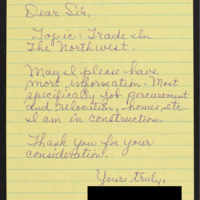 Dear Sir,
Topic: Trade In
The Northwest.
May I please have
more information. Most
specifically for percurement
and relocation, homes, etc.
I am in construction.
Thank you for your
consideration.
Yours truly,